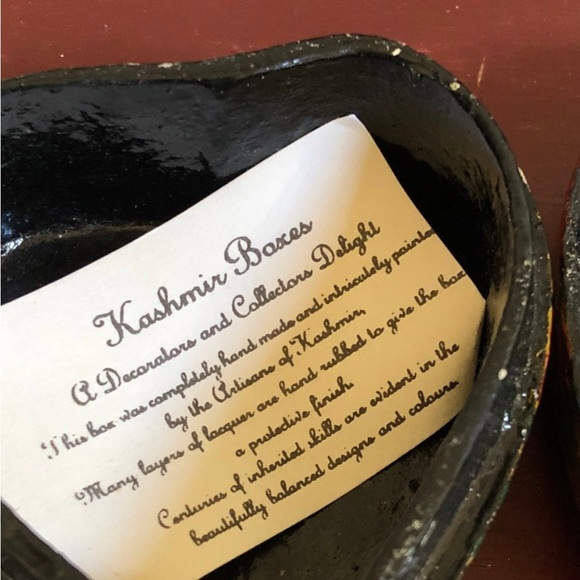 Kashmir Boxes
A Decorators and Collectors Delight
This box was completely hand made and intricately painted
by the Artisans of Kashmir.
Many layers of lacquer are hand rubbed to give the box
a protective finish.
Centuries of inherited skills are evident in the
beautifully balanced designs and colours.